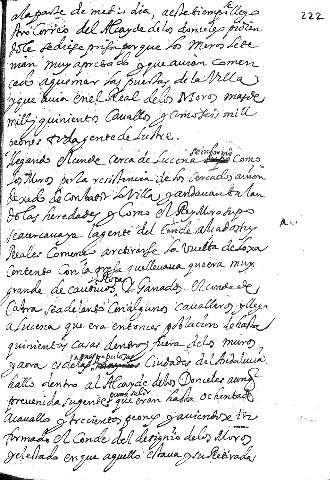 222
a la parte de medio dia, a este tiempo llego
otro Correo del Alcayde de los donceles pidien
dole se diese prisa porque los Moros le te
nian muy apretado y que auian comen
cado a quemar las puertas de la Villa
y que auia en el Real de los Moros mas de
mill y quinientos cauallos y como seis mill
peones toda gente de lustre.
llegando el Conde cerca de Lucena se informo Como
los Moros por la resistencia de los Cercados auian
dexado de conbatir la Villa y andauan talan
do las heredades y Como el Rey Moro supo
se acercaua ya la gente del Conde alçadas sus
Reales Començo a retirarse la Vuelta de Loxa
contento con la presa que lleuaua que era muy
grande de cautiuos Ropas y Ganados. El conde de
Cabra se adelanto Con algunos caualleros y llega
a Lucena que era entonces poblacion de hasta
quinientas casas dentro y fuera de los muros
y aora es de las mas populosas Ciudades del Andalucia
hallo dentro al Alcayde de los Donceles aun
preuenida su gente para salir que eran hasta ochenta de
a cauallo y trecientos peones y auiendose
formado el Conde del designio de los Moros
y el estado en que aquello estaua y su Retirada